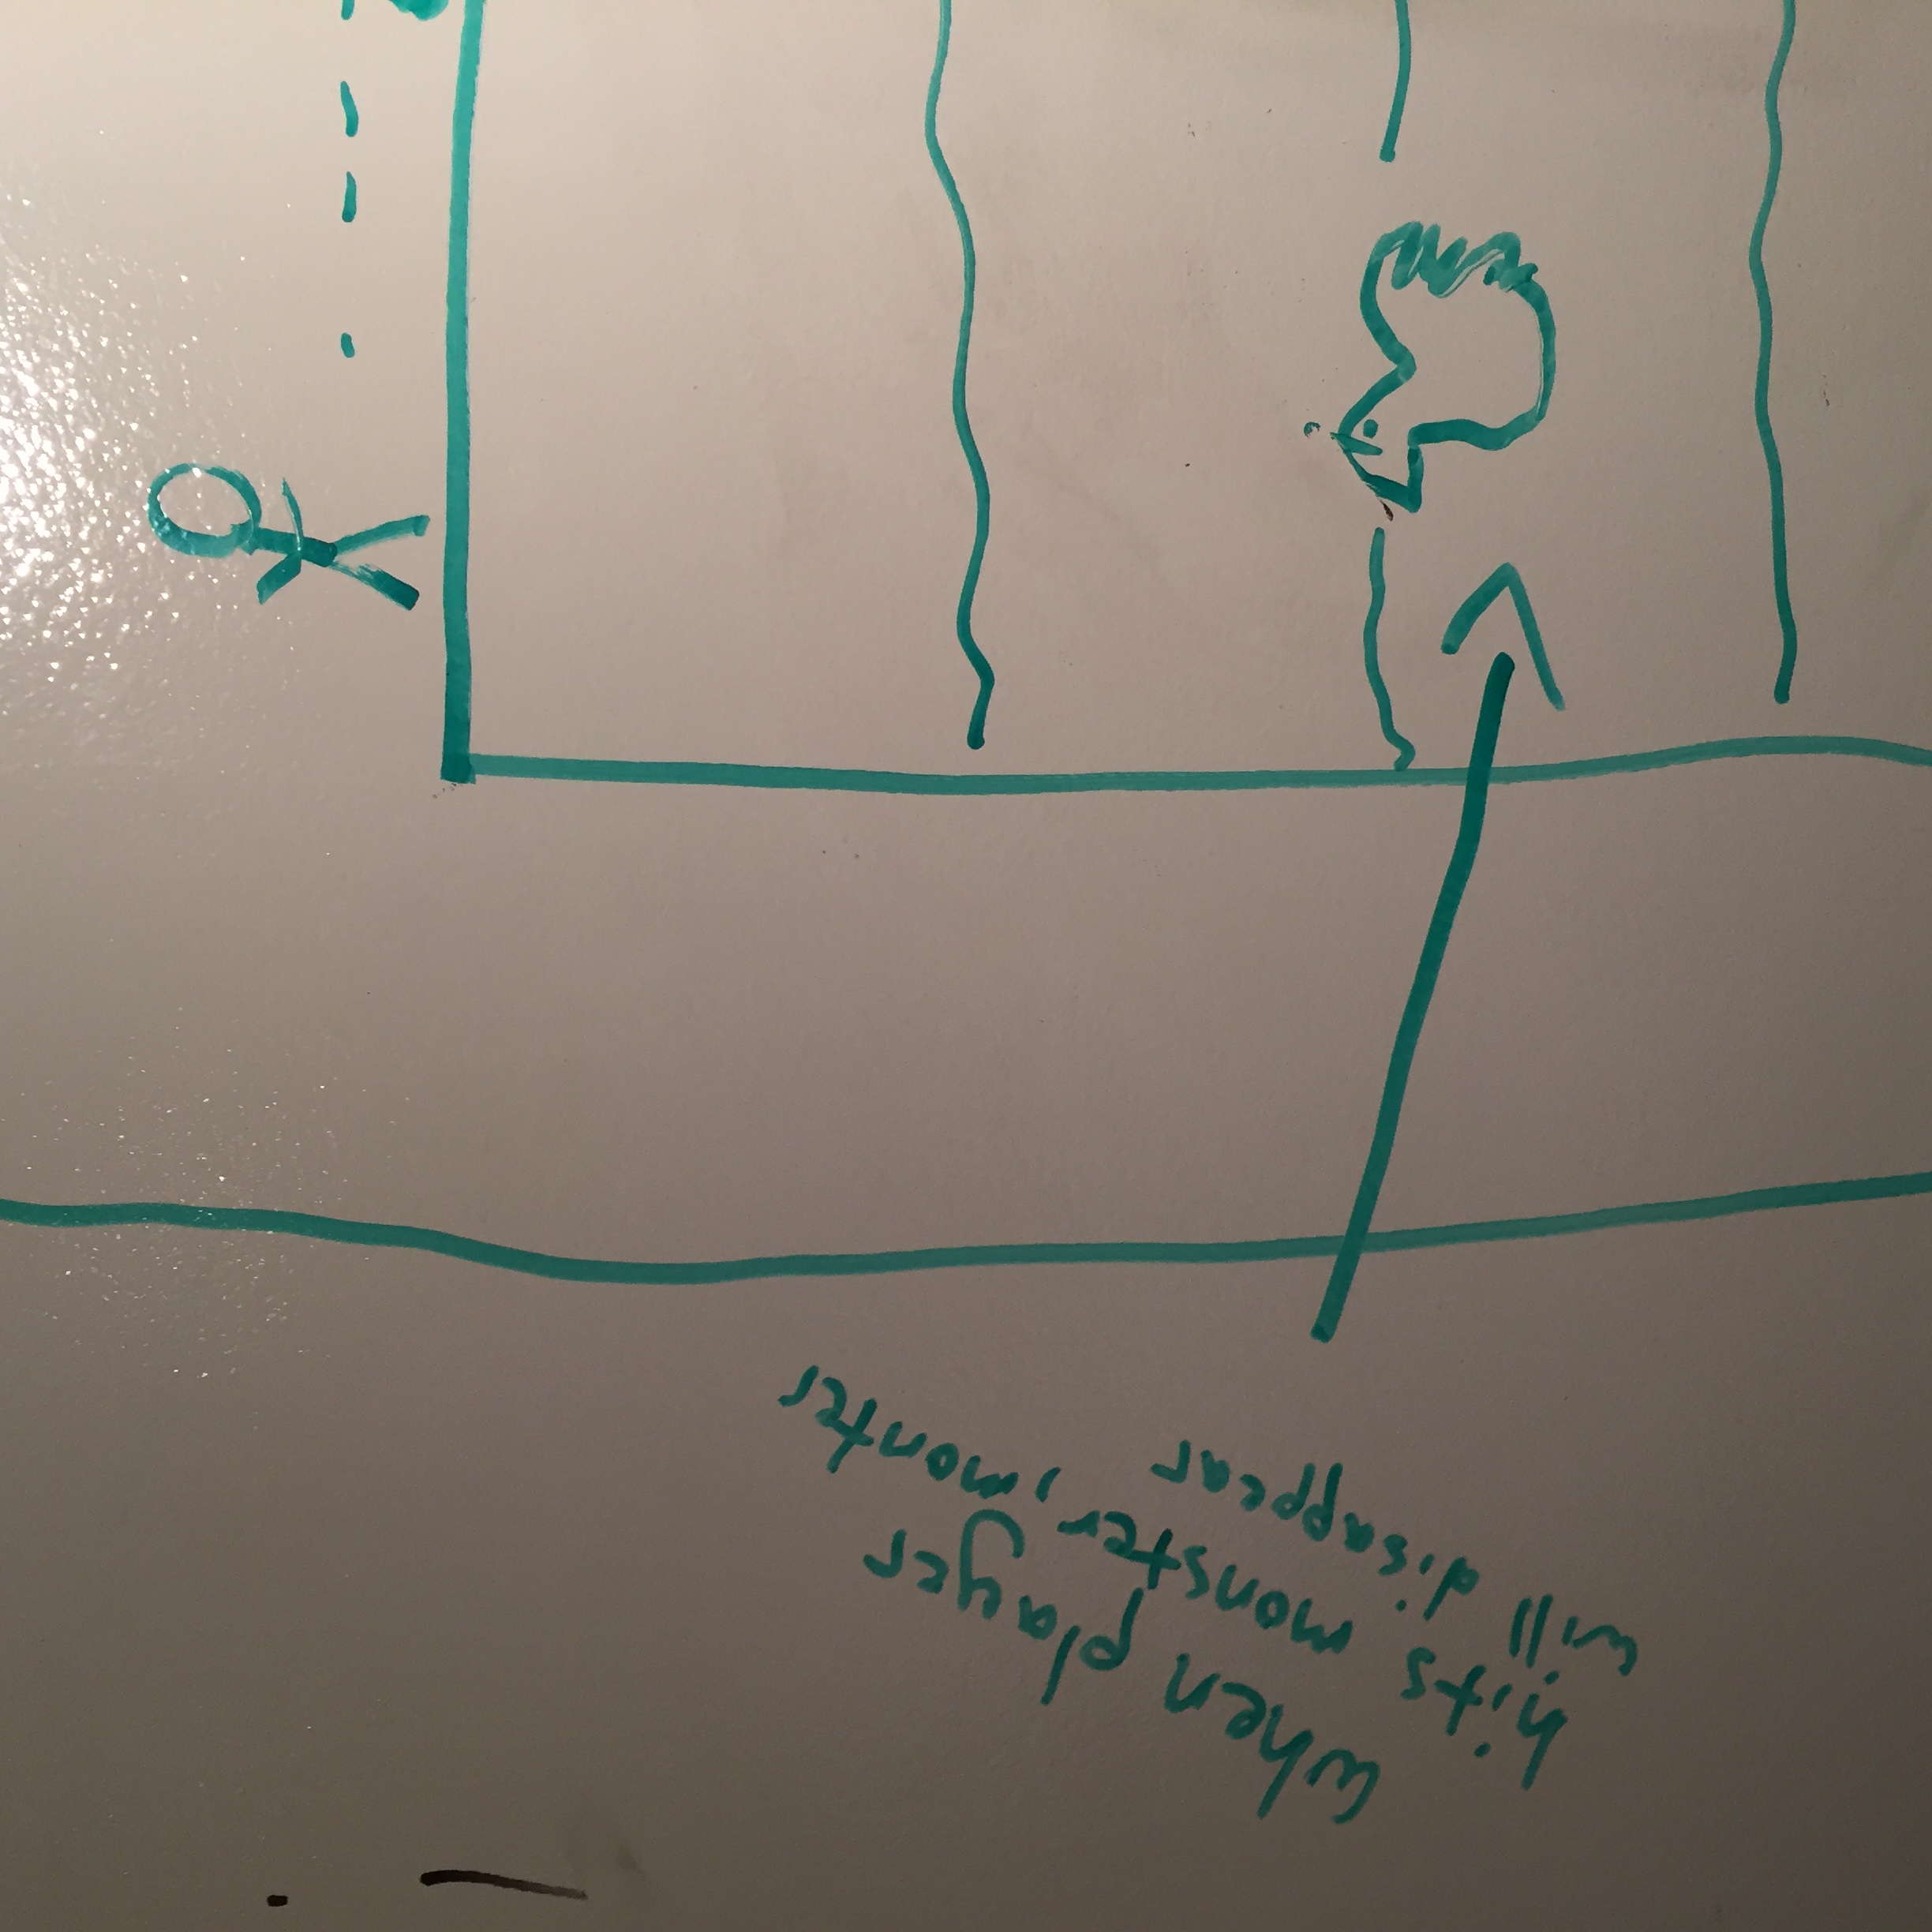 When player
hits monster, monter
will disappear